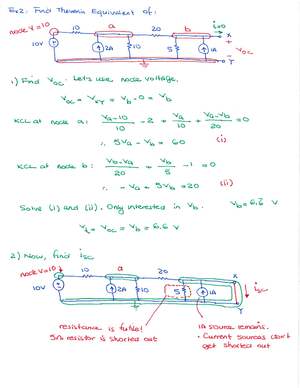 Ex2: Find Thevenin Equivalent of:
node V=10 10 a 20 b i=0 x
10V 2A 10 5 1A + Voc -
Y
1) Find Voc. Let's use node voltage.
Voc = Vxy = Vb - 0 = Vb
KCL at node a: (Va-10)/10 - 2 + Va/10 + (Va-Vb)/20 = 0
∴ 5Va - Vb = 60 (i)
KCL at node b: (Vb-Va)/20 + Vb/5 - 1 = 0
∴ -Va + 5Vb = 20 (ii)
Solve (i) and (ii). Only interested in Vb. Vb = 6.6 V
Vt = Voc = Vb = 6.6 V
2) Now, find isc
node V=10 10 a 20 x
10V 2A 10 5 1A isc
Y
resistance is futile! 1A source remains.
5Ω resistor is shorted out • Current sources don't
get shorted out